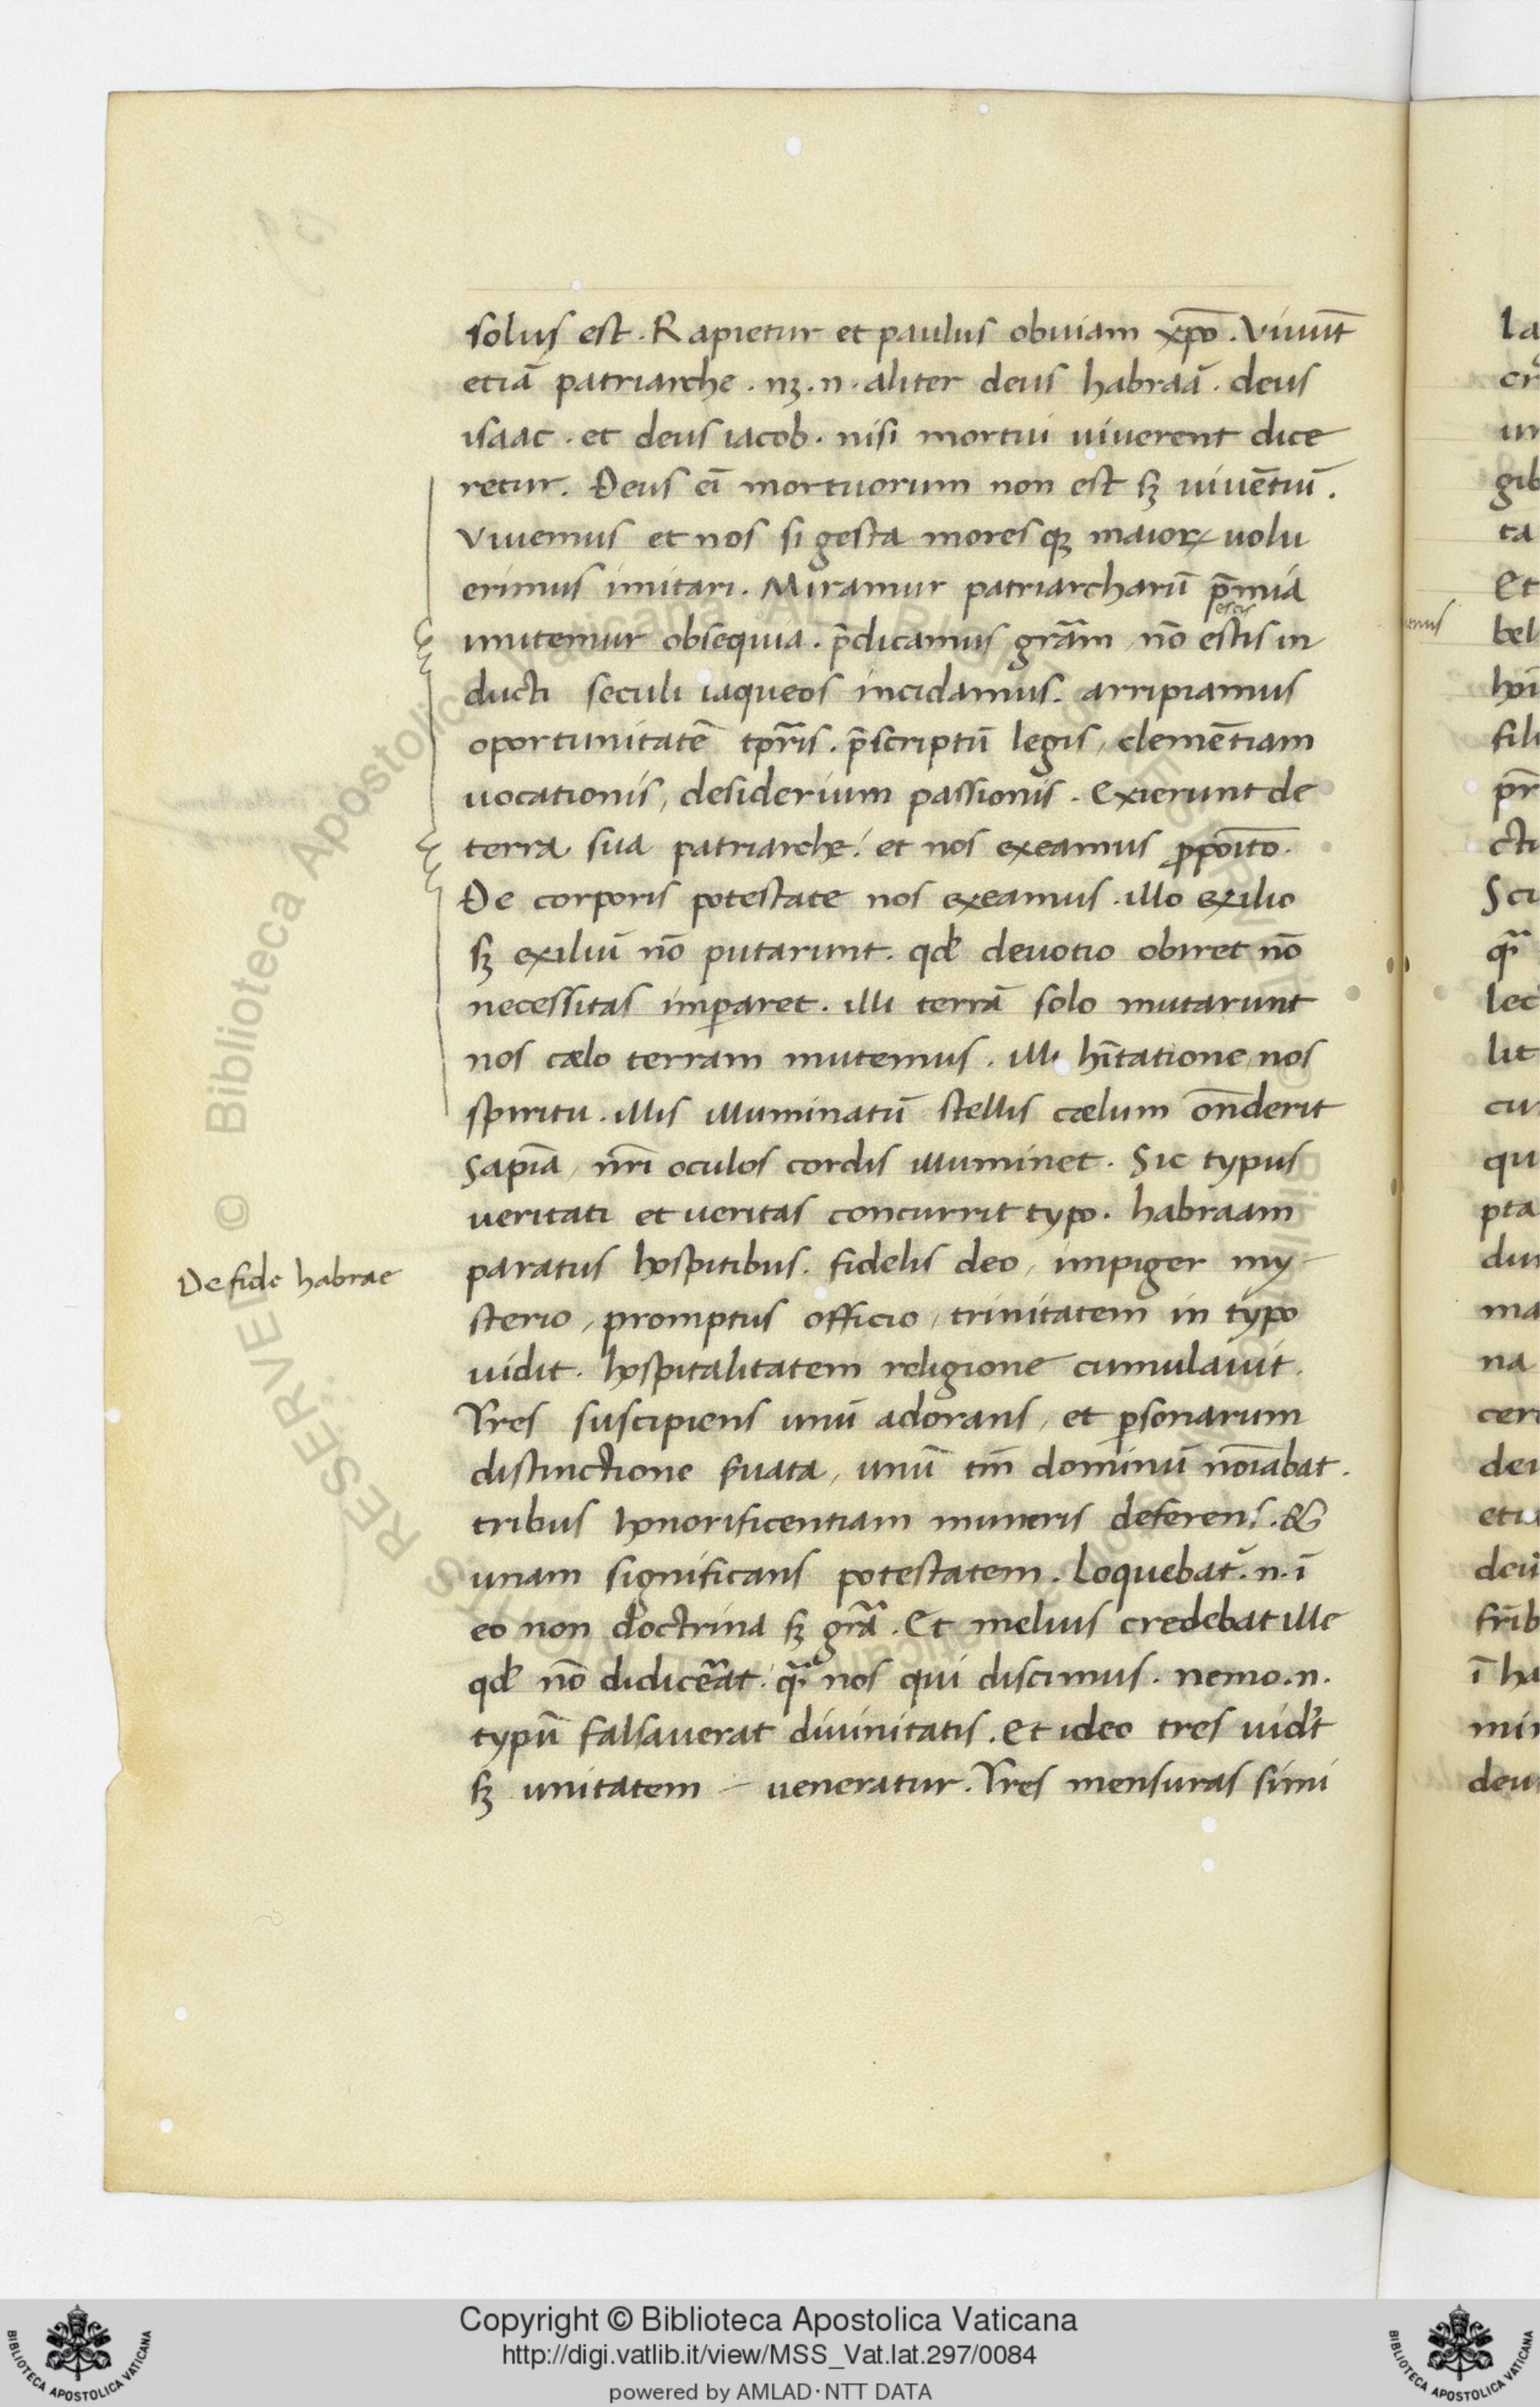 solus est. Rapietur et paulus obuiam xp̄o. Viuūt
etiā patriarche. nꝫ.n. aliter deus habraā. deus
isaac. et deus iacob. nisi mortui uiuerent dice
retur. Deus ei̅ mortuorum non est sꝫ uiuētiū.
Viuemus et nos si gesta moresqꝫ maioꝝ uolu
erimus imitari. Miramur patriarcharū p̄mia
escis
imitemur obsequia. p̄dicamus gr̄am, nō estis in
ducti seculi iaqueos incidamus. arripiamus
oportunitatē tp̄ris. p̄scriptū legis, clemētiam
uocationis, desiderium passionis. Exierunt de
terra sua patriarche: et nos exeamus ꝓpoīto.
De corporis potestate nos exeamus. illo exilio
sꝫ exiliū nō putarunt. qđ deuotio obiret nō
necessitas imꝑaret. illi terrā solo mutarunt
nos cælo terram mutemus. illi hītatione, nos
spiritu. illis illuminatū stellis cælum on̄derit
sapīa, nr̄i oculos cordis illuminet. Sic typus
ueritati et ueritas concurrit typo. habraam
De fide habrae
paratus hospitibus. fidelis deo, impiger my-
sterio, promptus officio, trinitatem in typo
uidit. hospitalitatem religione cumulauit.
Tres suscipiens unū adorans, et ꝑsonarum
distinctione s̄uata, unū tn̄ dominū noīabat.
tribus honorificentiam muneris deferens. &
unam significans potestatem. Loquebat᷑.n. ī
eo non doctrina sꝫ gr̄a. Et melius credebat ille
qđ nō didicerat: q̄ nos qui discimus. nemo.n.
typū falsauerat diuinitatis. Et ideo tres uidit
sꝫ unitatem – ueneratur. Tres mensuras simi
Copyright © Biblioteca Apostolica Vaticana
http://digi.vatlib.it/view/MSS_Vat.lat.297/0084
powered by AMLAD·NTT DATA
BIBLIOTECA APOSTOLICA VATICANA
BIBLIOTECA APOSTOLICA VATICANA